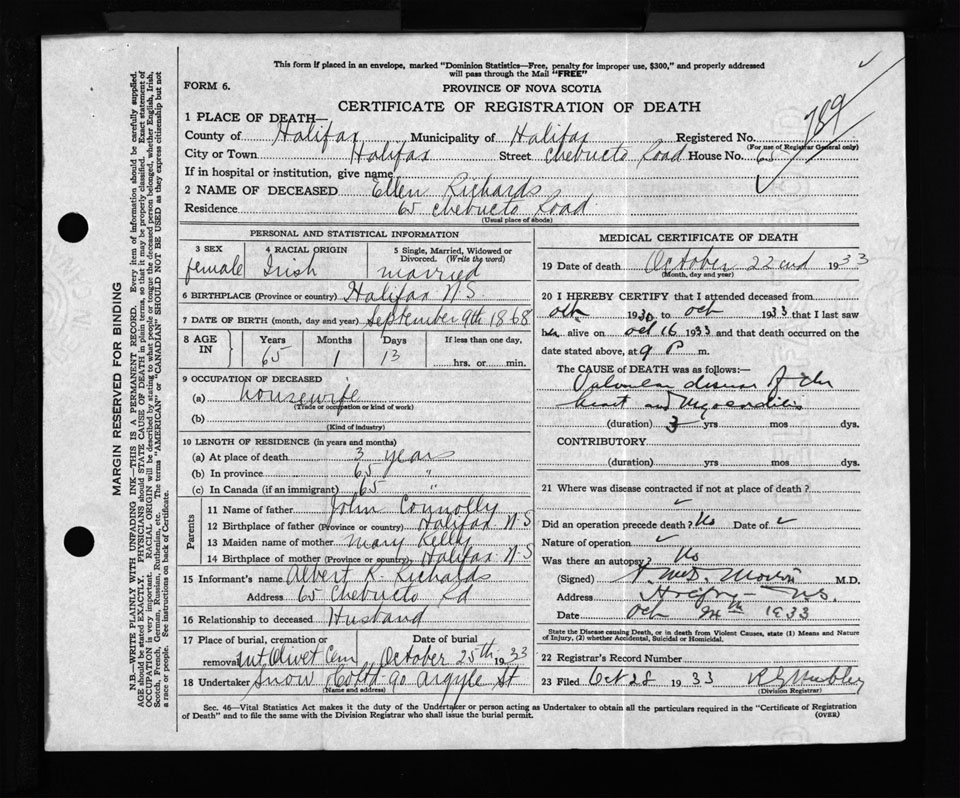 This form if placed in an envelope, marked "Dominion Statistics—Free, penalty for improper use, $300," and properly addressed
will pass through the Mail "FREE"
FORM 6.
PROVINCE OF NOVA SCOTIA
CERTIFICATE OF REGISTRATION OF DEATH
1 PLACE OF DEATH—
County of Halifax Municipality of Halifax Registered No. 789
(For use of Registrar General only)
City or Town Halifax Street Chebucto Road House No. 65
If in hospital or institution, give name
2 NAME OF DECEASED Ellen Richards
Residence 65 Chebucto Road
(Usual place of abode)
PERSONAL AND STATISTICAL INFORMATION
3 SEX female
4 RACIAL ORIGIN Irish
5 Single, Married, Widowed or
Divorced. (Write the word)
married
6 BIRTHPLACE (Province or country) Halifax N S
7 DATE OF BIRTH (month, day and year) September 9th 1868
8 AGE IN Years 65 Months 1 Days 13 If less than one day,
hrs. or min.
9 OCCUPATION OF DECEASED
(a) housewife
(Trade or occupation or kind of work)
(b)
(Kind of industry)
10 LENGTH OF RESIDENCE (in years and months)
(a) At place of death 3 years
(b) In province 65 "
(c) In Canada (if an immigrant) 65 "
Parents
11 Name of father John Connolly
12 Birthplace of father (Province or country) Halifax N S
13 Maiden name of mother Mary Kelly
14 Birthplace of mother (Province or country) Halifax N S
15 Informant's name Albert K. Richards
Address 65 Chebucto Rd
16 Relationship to deceased Husband
17 Place of burial, cremation or Date of burial
removal Mt Olivet Cem October 25th 1933
18 Undertaker Snow & Co Ltd 90 Argyle St
(Name and address)
MEDICAL CERTIFICATE OF DEATH
19 Date of death October 22nd 1933
(Month, day and year)
20 I HEREBY CERTIFY that I attended deceased from
Oct 1930, to Oct 1933 that I last saw
her alive on Oct 16 1933 and that death occurred on the
date stated above, at 9 P m.
The CAUSE OF DEATH was as follows:—
Valvular disease of the
heart and Myocarditis
(duration) 3 yrs mos dys.
CONTRIBUTORY
(duration) yrs mos dys.
21 Where was disease contracted if not at place of death?
✓
Did an operation precede death? No Date of ✓
Nature of operation ✓
Was there an autopsy? No
(Signed) M.D.
Address Halifax N.S.
Date Oct 24th 1933
State the Disease causing Death, or in death from Violent Causes, state (1) Means and Nature
of Injury, (2) whether Accidental, Suicidal or Homicidal.
22 Registrar's Record Number
23 Filed Oct 28 1933
(Division Registrar)
Sec. 46—Vital Statistics Act makes it the duty of the Undertaker or person acting as Undertaker to obtain all the particulars required in the "Certificate of Registration
of Death" and to file the same with the Division Registrar who shall issue the burial permit.
(OVER)
MARGIN RESERVED FOR BINDING
N.B.—WRITE PLAINLY WITH UNFADING INK—THIS IS A PERMANENT RECORD. Every item of information should be carefully supplied.
AGE should be stated EXACTLY. PHYSICIANS should STATE CAUSE OF DEATH in plain terms, so that it may be properly classified. Exact statement of
OCCUPATION is very important. RACIAL ORIGIN will be described by stating to what people or tongue the deceased person belonged, whether English, Irish,
Scotch, French, German, Russian, Ruthenian, etc. The terms "AMERICAN" or "CANADIAN" SHOULD NOT BE USED as they express citizenship but not
a race or people. See instructions on back of Certificate.